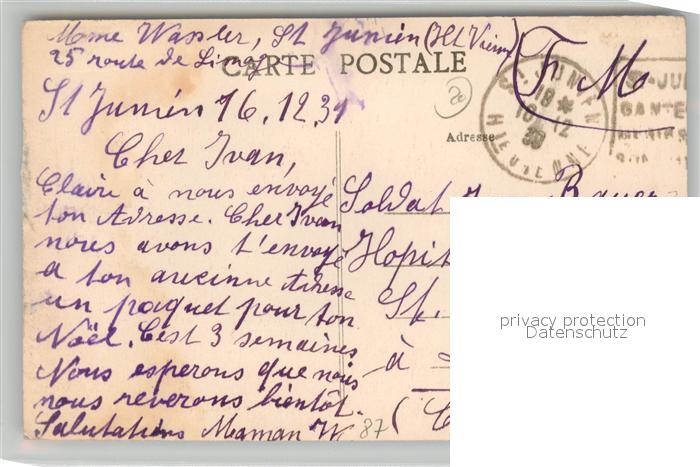 Mme Wassler, St Junien (Hte Vienne)
25 route de Limoges
CARTE POSTALE
F M
St Junien 16.12.39
Adresse
Cher Ivan,
Claire à nous envoyé
ton Adresse. Cher Ivan
nous avons t'envoyé
a ton ancinne Adresse
un paquet pour ton
Noël. C'est 3 semaines
Nous esperons que nous
nous reverons bientôt.
Salutations Maman W.
87
Soldat
Hopit
St.
à
(
privacy protection
Datenschutz